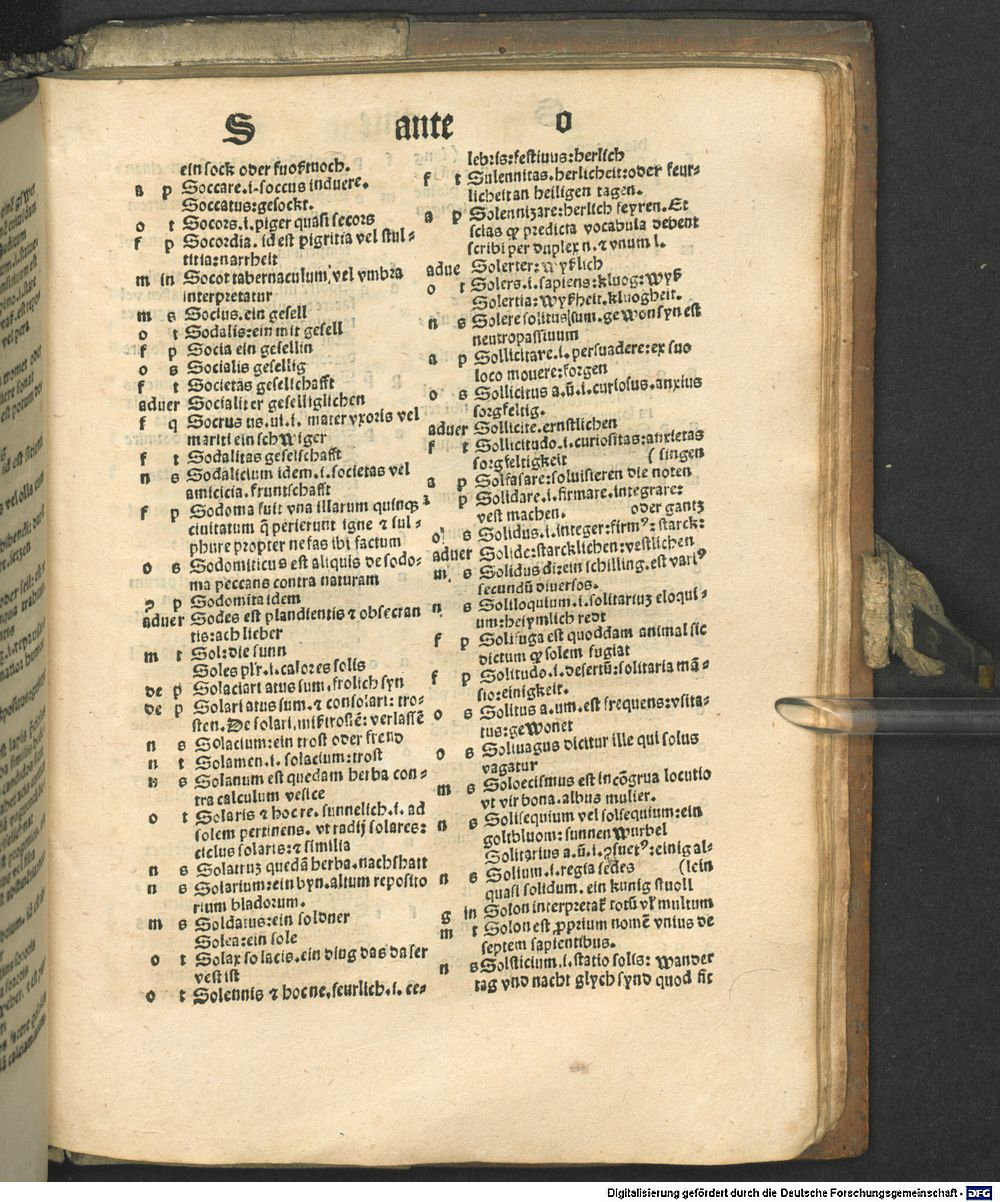 S ante o
ein sock oder fuoßtuoch.
a p Soccare .i. soccus induere.
Soccatus: gesockt.
o t Socors .i. piger quasi secors
f p Socordia. id est pigritia vel stul-
titia: narrheit
m in Socot tabernaculum, vel vmbra
interpretatur
m s Socius. ein gesell
o t Sodalis: ein mit gesell
f p Socia ein gesellin
o s Socialis gesellig
f t Societas gesellschafft
aduer Socialiter geselliglichen
f q Socrus us. ui. i. mater vxoris vel
mariti ein schwiger
f t Sodalitas gesellschafft
n s Sodalicium idem .i. societas vel
amicicia. fruntschafft
f p Sodoma fuit vna illarum quinqꝫ
ciuitatum q̄ perierunt igne ⁊ sul-
phure propter nefas ibi factum
o s Sodomiticus est aliquis de sodo-
ma peccans contra naturam
ꝯ p Sodomita idem
aduer Sodes est plandientis ⁊ obsecran
tis: ach lieber
m t Sol: die sunn
Soles plr̄ .i. calores solis
de p Solaciari atus sum. frolich syn
de p Solari atus sum. ⁊ consolari: tro-
sten. De solari, mißtrostē: verlassē
n s Solacium: ein trost oder freud
n t Solamen .i. solacium: trost
n s Solanum est quedam herba con-
tra calculum vesice
o t Solaris ⁊ hoc re. sunnelich .i. ad
solem pertinens. vt radij solares:
ciclus solaris: ⁊ similia
n s Solatruꝫ quedā herba. nachshatt
n s Solarium: ein byn. altum reposito
rium bladorum.
m s Soldatus: ein soldner
Solea: ein sole
o t Solax solacis. ein ding das da ser
vest ist
o t Solennis ⁊ hoc ne. feurlich .i. ce-
lebris: festiuus: herlich
f t Sulennitas. herlicheit: oder feur-
licheit an heiligen tagen.
a p Solennizare: herlich feyren. Et
scias qꝫ predicta vocabula debent
scribi per duplex n. ⁊ vnum l.
adue Solerter: wyßlich
o t Solers .i. sapiens: kluog: wyß
Solertia: wyßheit. kluogheit.
n s Solere solitus sum. gewon syn est
neutropassiuum
a p Sollicitare .i. persuadere: ex suo
loco mouere: sorgen
o s Sollicitus a. ū. i. curiosus. anxius
sorgfeltig.
aduer Sollicite. ernstlichen
f t Sollicitudo .i. curiositas: anxietas
sorgfeltigkeit (singen
a p Solfasare: soluisieren die noten
a p Solidare .i. firmare. integrare:
vest machen. oder gantz
o s Solidus .i. integer: firmꝰ: starck:
aduer Solide: starcklichen: vestlichen
m s Solidus di: ein schilling. est variꝰ
secundū diuersos.
n s Soliloquium .i. solitariuꝫ eloqui-
um: heiymlich redt
f p Solifuga est quoddam animal sic
dictum qꝫ solem fugiat
f p Solitudo .i. desertū: solitaria mā-
sio: einigkeit.
o s Solitus a. um. est frequens: vsita-
tus: gewonet
o s Soliuagus dicitur ille qui solus
vagatur
m s Soloecismus est incōgrua locutio
vt vir bona. albus mulier.
n s Solisequium vel solsequium: ein
goltbluom: sunnen wurbel
Solitarius a. ū. i. ꝯsuetꝰ: einig al-
n s Solium .i. regia sedes (lein
quasi solidum. ein kunig stuoll
g in Solon interpretat̄ totū vł multum
m t Solon est ꝓprium nomē vnius de
septem sapientibus.
n s Solsticium .i. statio solis: wander
tag vnd nacht glych synd quod fit
Digitalisierung gefördert durch die Deutsche Forschungsgemeinschaft - DFG